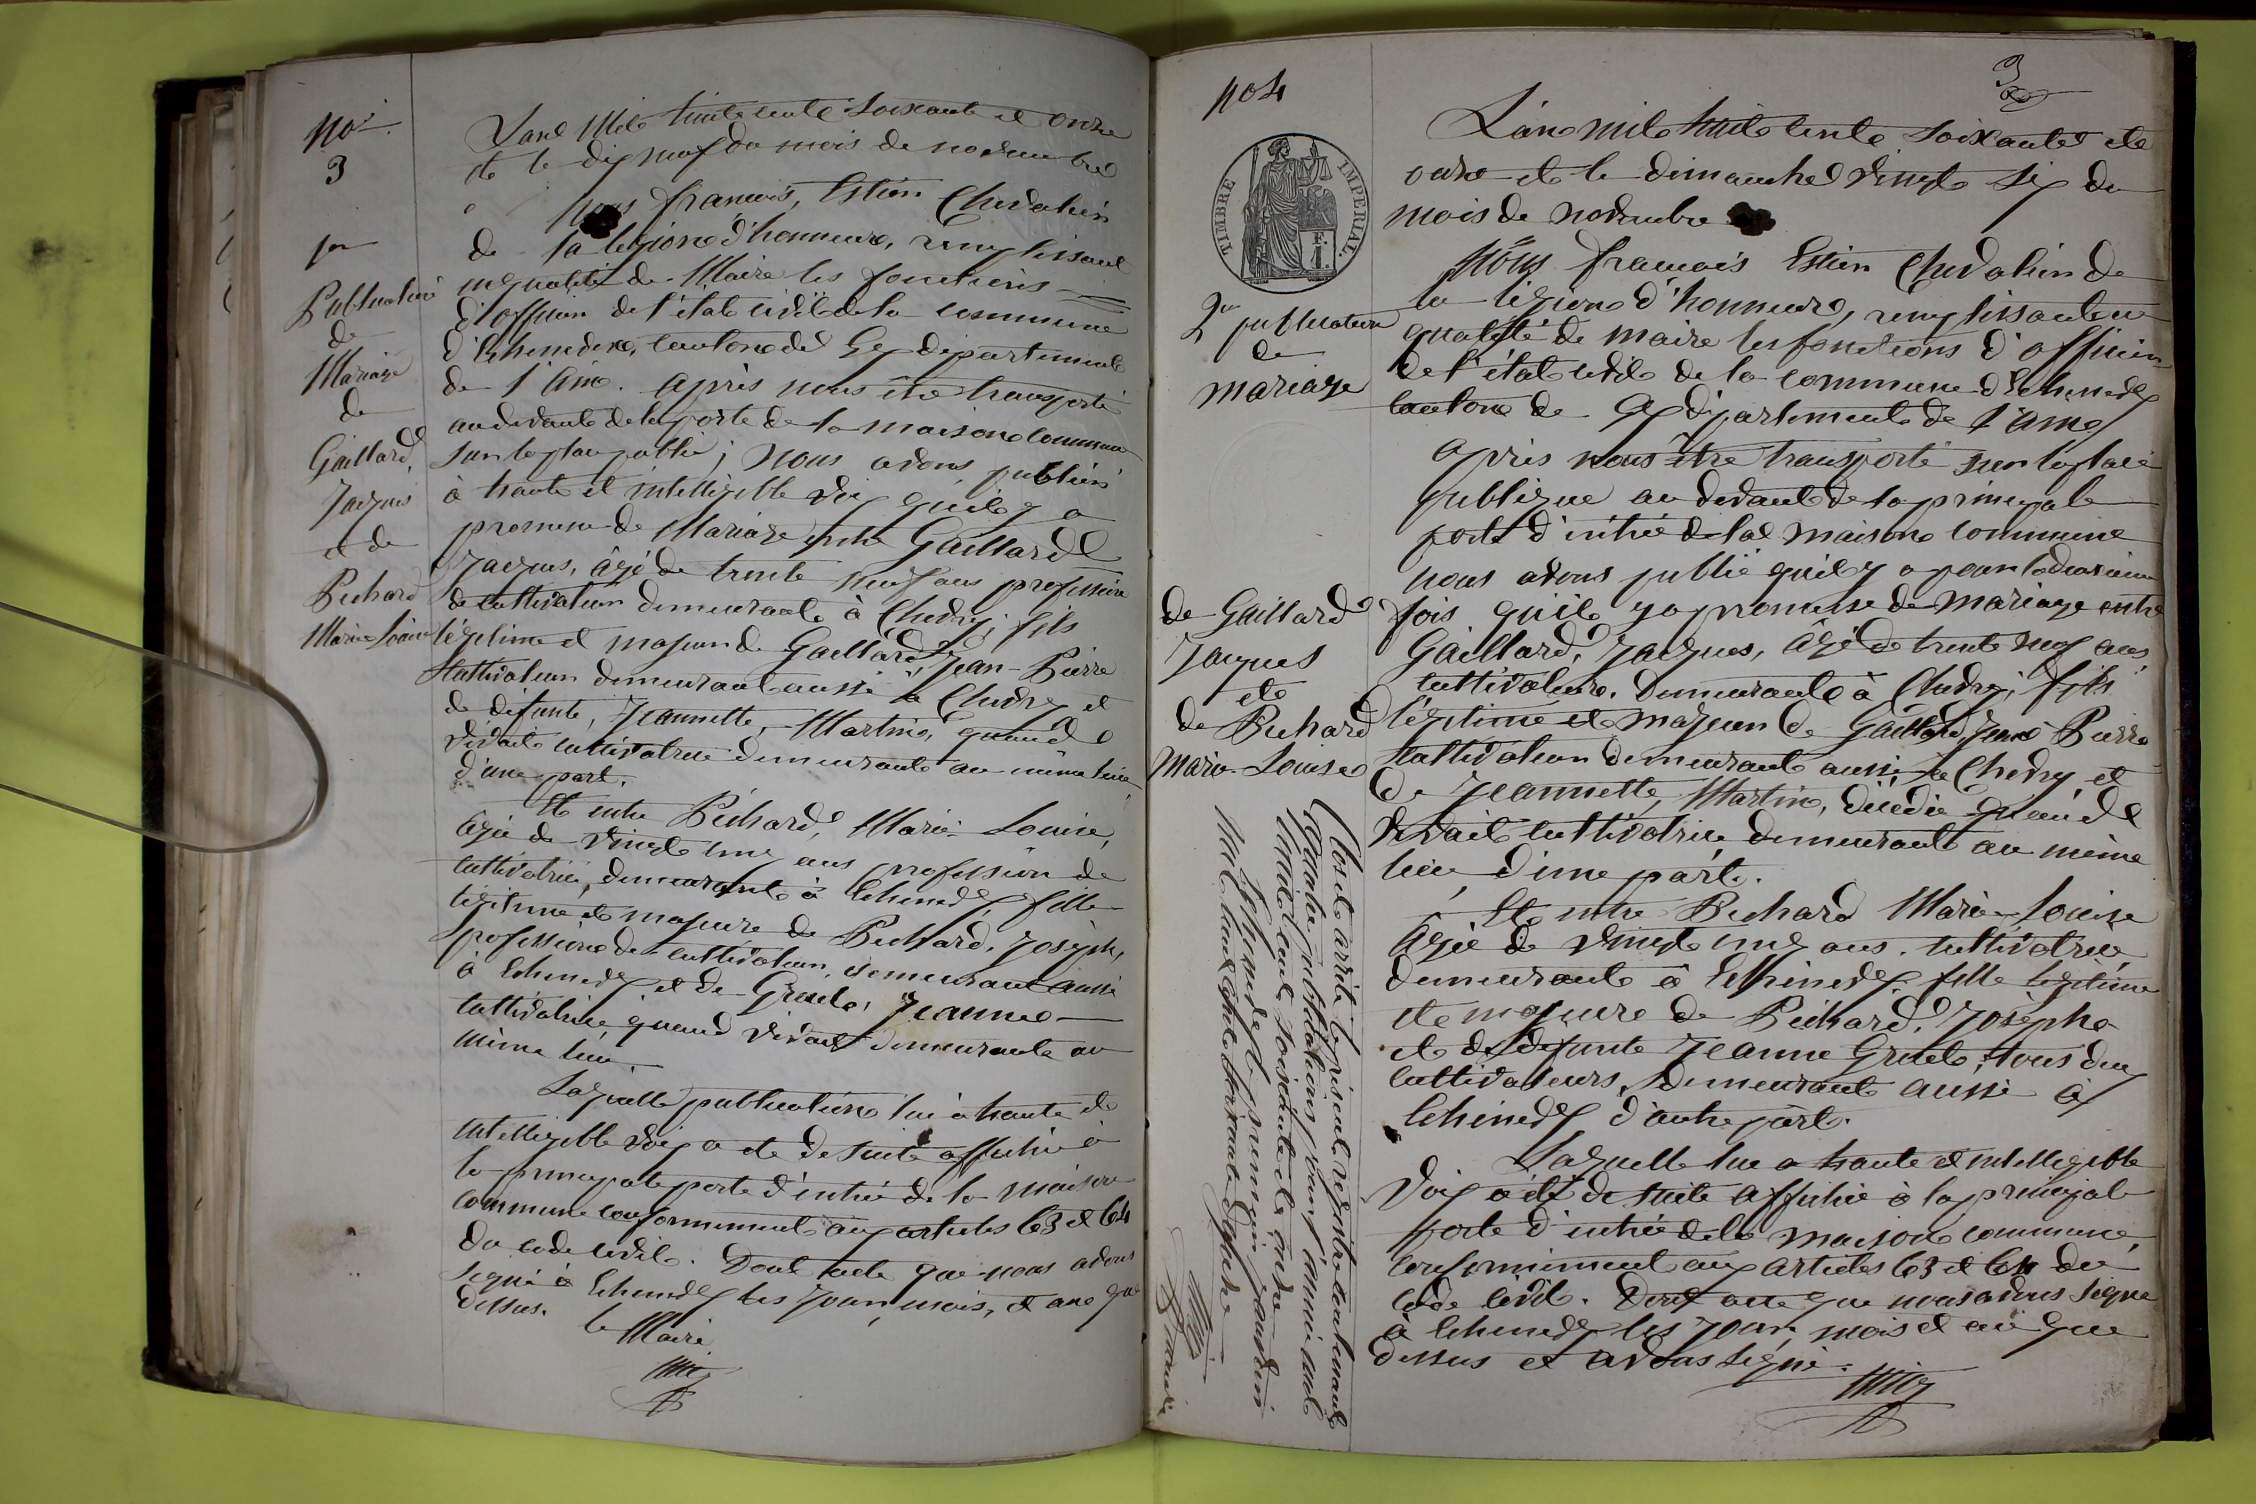 No
3
1re
Publication
de
Mariage
de
Gaillard,
Jacques
et de
Béchard
Marie Louise
L'an Mil huit cent soixante et onze
et le dix neuf du mois de novembre
Nous françois, Estier Chevalier
de la légion d'honneur, remplissant
en qualité de Maire les fonctions
d'officier de l'état civil de la commune
d'Echenevex, canton de Gex département
de l'Ain. après nous être transporté
au devant de la porte de la maison commune
sur la place publi; nous avons publiér
à haute et intelligible voix qu'il y a
promesse de Mariage entre Gaillard
Jacques, âgé de trente neuf ans profession
de cultivateur demeurant à Chevry; fils
légitime et majeur de Gaillard, Jean-Pierre
Cultivateur demeurant aussi à Chevry et
de défunte, Jeannette, Martin, quand
vivait cultivatrice demeurant au même lieu,
d'une part.
Et entre Béchard, Marie-Louise,
âgée de vingt cinq ans profession de
cultivatrice, demeurant à Echenevex fille
légitime et majeure de Béchard, Joseph,
profession de cultivateur, demeurant aussi
à Echenevex et de Gruet, Jeanne
cultivatrice, quand vivait demeurante au
même lieu
Laquelle publication lue à haute et
intelligible voix a été de suite affichée à
la principale porte d'entrée de la maison
commune conformément aux articles 63 et 64
du code civil. Dont acte que nous avons
signé à Echenevex les jour, mois, et an que
dessus.
le Maire
No 4
TIMBRE IMPERIAL.
F.
1.
2me publication
de
mariage
de Gaillard
Jacques
et
de Béchard
Marie-Louise
Clos et arrêté le présent registre contenant
quatre publications pour l'année
mil huit cent soixante et onze
Echenevex le premier janvier
mil huit cent soixante douze
3
L'an mil huit cent soixante et
onze et le dimanche vingt six du
mois de novembre
Nous françois Estier Chevalier de
la légion d'honneur, remplissant en
qualité de maire les fonctions d'officier
de l'état civil de la commune d'Echenevex
canton de Gex département de l'Ain
après nous être transporté sur la place
publique au devant de la principale
porte d'entrée de la maison commune
nous avons publié qu'il y a pour la deuxième
fois qu'il y a promesse de mariage entre
Gaillard, Jacques, âgé de trente neuf ans,
cultivateur. demeurant à Chevry; fils
légitime et majeur de Gaillard, Jean Pierre
Cultivateur demeurant aussi à Chevry et
de Jeannette, Martin, décédée quand
vivait cultivatrice demeurant au même
lieu, d'une part.
Et entre Béchard Marie-Louise
âgée de vingt cinq ans. cultivatrice
demeurante à Echenevex fille légitime
et majeure de Béchard, Joseph
et de défunte Jeanne Gruet; tous deux
cultivateurs, demeurant aussi à
Echenevex d'autre part.
Laquelle lue a haute et intelligible
voix a été de suite affichée à la principale
porte d'entrée de la maison commune,
conformément aux articles 63 et 64 du
code civil. Dont acte que nous avons signé
à Echenevex les jour, mois et an que
dessus et avons signé.